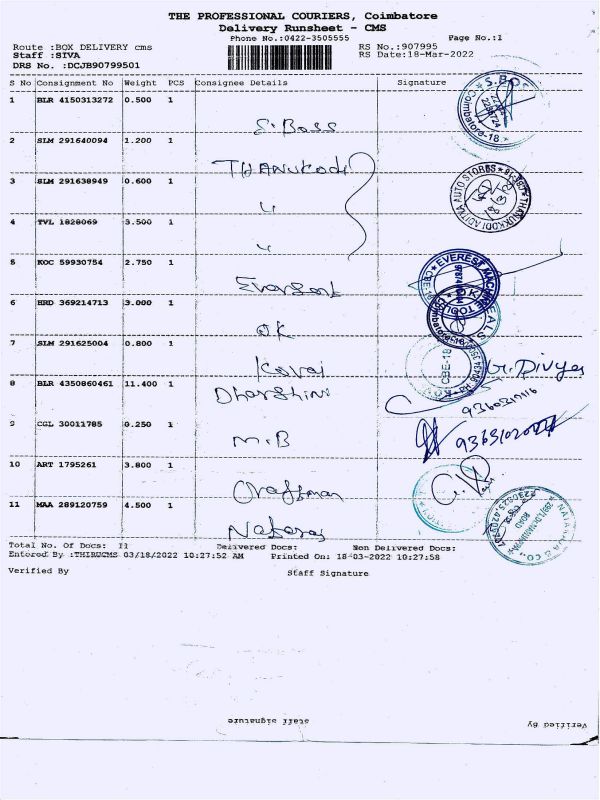 THE PROFESSIONAL COURIERS, Coimbatore
Delivery Runsheet - CMS
Phone No.:0422-3505555
Page No.:1
Route :BOX DELIVERY cms
RS No.:907995
Staff :SIVA
RS Date:18-Mar-2022
DRS No. :DCJB90799501
S No Consignment No Weight PCS Consignee Details Signature
1 BLR 4150313272 0.500 1
S. Boss
2 SLM 291640094 1.200 1
THANUKODI
3 SLM 291638949 0.600 1
"
4 TVL 1828069 3.500 1
"
5 KOC 59930754 2.750 1
6 HRD 369214713 3.000 1
OK
7 SLM 291625004 0.800 1
Kovai
8 BLR 4350860461 11.400 1
Dharshini
9 CGL 30011785 0.250 1
M.B
10 ART 1795261 3.800 1
Craftman
11 MAA 289120759 4.500 1
Coimbatore-18
THANUKKODI ADITYA AUTO STORES
EVEREST MACHINE TOOLS
CBE-18
Total No. Of Docs: 11 Delivered Docs: Non Delivered Docs:
Entered By :THIRUCMS 03/18/2022 10:27:52 AM Printed On: 18-03-2022 10:27:58
Verified By Staff Signature
Staff Signature Verified By